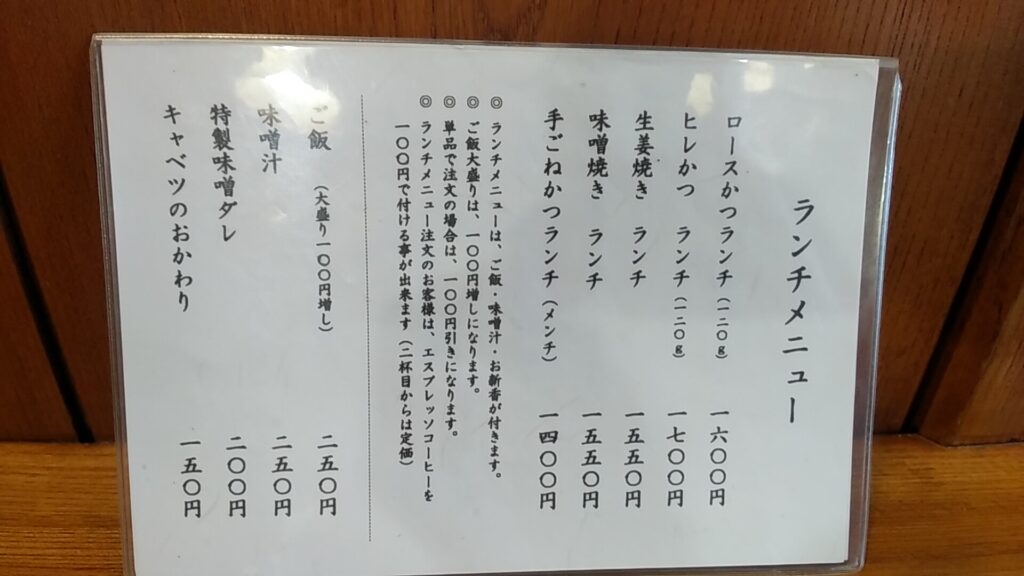 ランチメニュー
ロースかつランチ（一二〇g） 一六〇〇円
ヒレかつ ランチ（一二〇g） 一七〇〇円
生姜焼き ランチ 一五五〇円
味噌焼き ランチ 一五五〇円
手ごねかつランチ（メンチ） 一四〇〇円
◎ ランチメニューは、ご飯・味噌汁・お新香が付きます。
◎ ご飯大盛りは、一〇〇円増しになります。
◎ 単品で注文の場合は、一〇〇円引きになります。
◎ ランチメニュー注文のお客様は、エスプレッソコーヒーを
一〇〇円で付ける事が出来ます（二杯目からは定価）
ご飯 （大盛り一〇〇円増し） 二五〇円
味噌汁 二五〇円
特製味噌ダレ 二〇〇円
キャベツのおかわり 一五〇円